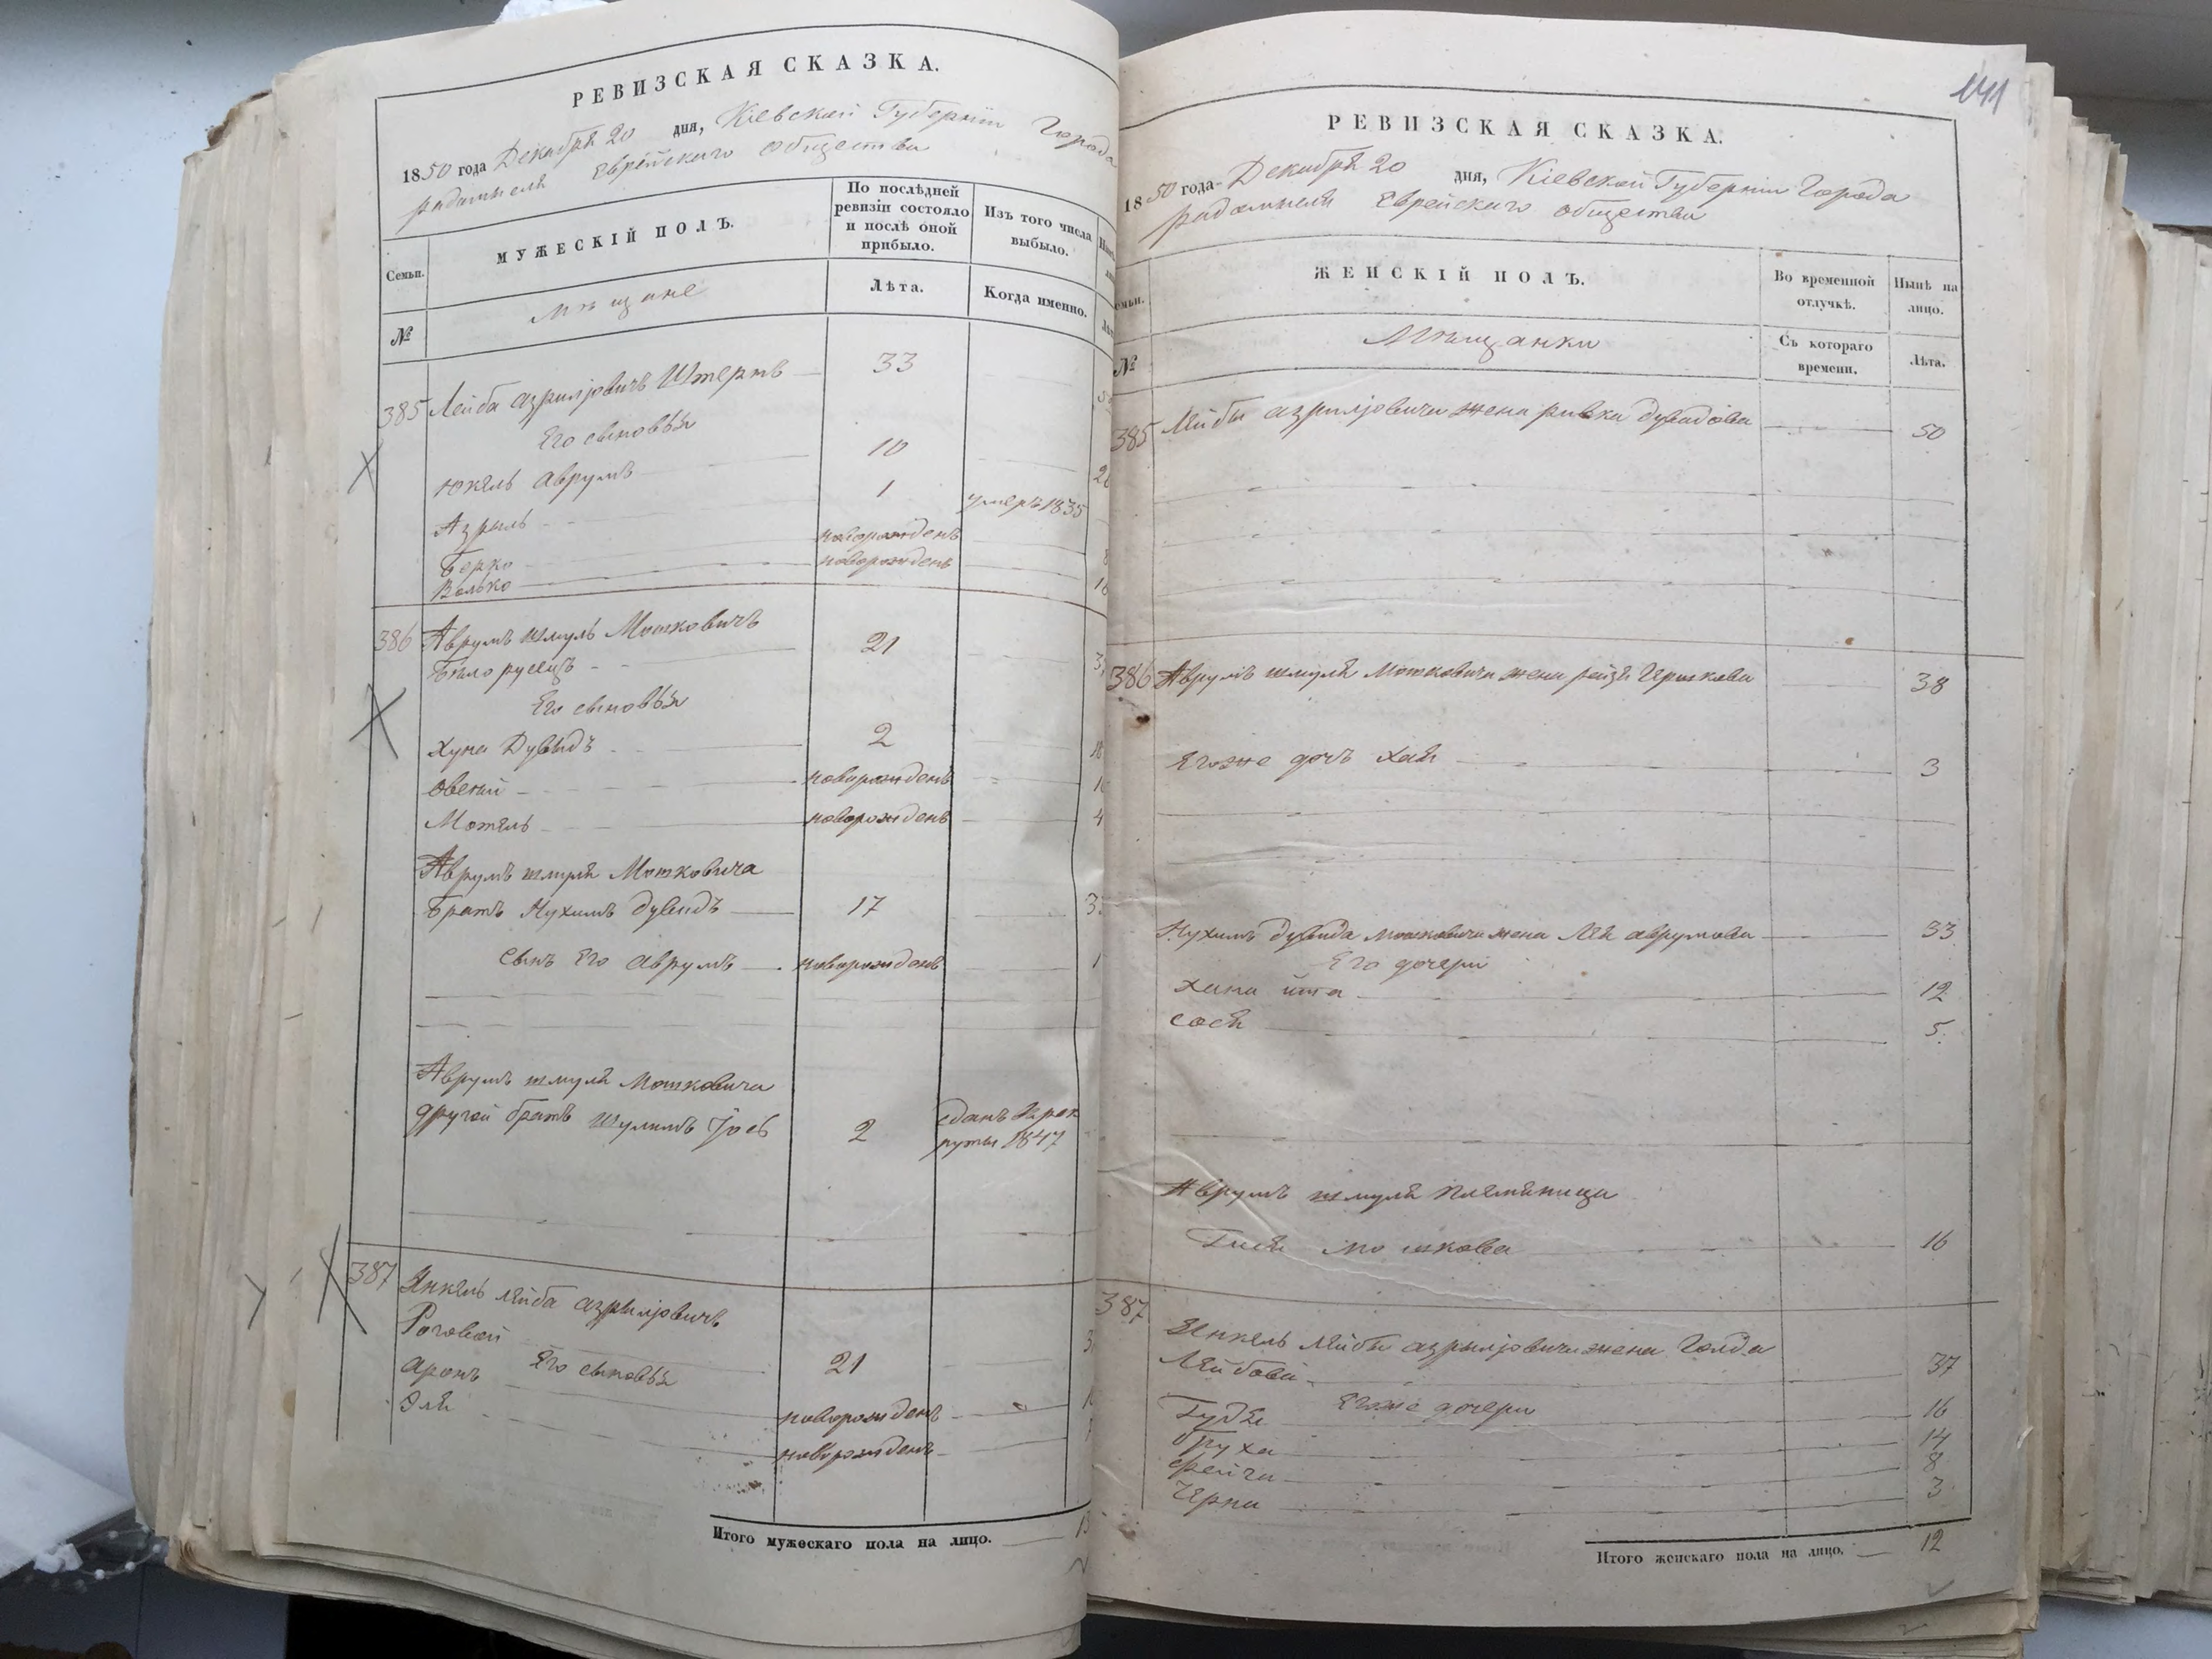 РЕВИЗСКАЯ СКАЗКА.
1850 года Декабря 20 дня, Кіевской Губерніи Города
радомысля Еврейскаго общества
Семьи.
МУЖЕСКІЙ ПОЛЪ.
По послѣдней
ревизіи состояло
и послѣ оной
прибыло.
Изъ того числа
выбыло.
№
мѣщане
Лѣта.
Когда именно.
385 Лейба азриліовичъ Штернъ 33
Его сыновья
Юкель аврумъ 10
Азриль 1 умеръ 1835
Берко новорожденъ
Волько новорожденъ
386 Аврумъ шмуль Мошковичъ
Бѣлоруецъ 21
Его сыновья
Хуна Дувидъ 2
Овсей новорожденъ
Мотель новорожденъ 4
Аврумъ шмуля Мошковича
братъ Нухимъ дувидъ 17
сынъ Его аврумъ новорожденъ
Аврумъ шмуля Мошковича
другой братъ Шулимъ 2 сданъ в рек
руты 1847
387 Янкель лейба азриліовичъ
Роговой 21
Его сыновья
аронъ новорожденъ
Эля новорожденъ
Итого мужескаго пола на лицо. 13
141
РЕВИЗСКАЯ СКАЗКА.
1850 года Декабря 20 дня, Кіевской Губерніи Города
радомысля Еврейскаго общества
ЖЕНСКІЙ ПОЛЪ.
Во временной
отлучкѣ.
Нынѣ на
лицо.
№
Мѣщанки
Съ котораго
времени.
Лѣта.
385 Лейбы азриліовича жена ривка дувидова 50
386 Аврумъ шмуля Мошковича жена рейзя Гершкова 38
Егоже дочь хая 3
Нухимъ дувида мошковича жена Лея аврумова 33
Его дочери
хана ита 12
сося 5
Аврумъ шмуля племяница
Гися мошкова 16
387
Янкель Лейбы азриліовича жена Голда
Лейбова 37
Егоже дочери
16
бруха 14
фейга 8
Черна 3
Итого женскаго пола на лицо. 12